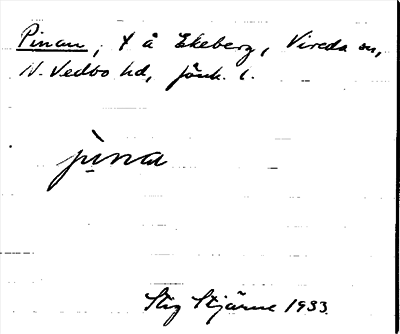 Pinan, x å Ekeberg, Vireda sn,
N. Vedbo hd, Jönk. l.
pìna
Stig Stjärne 1933.